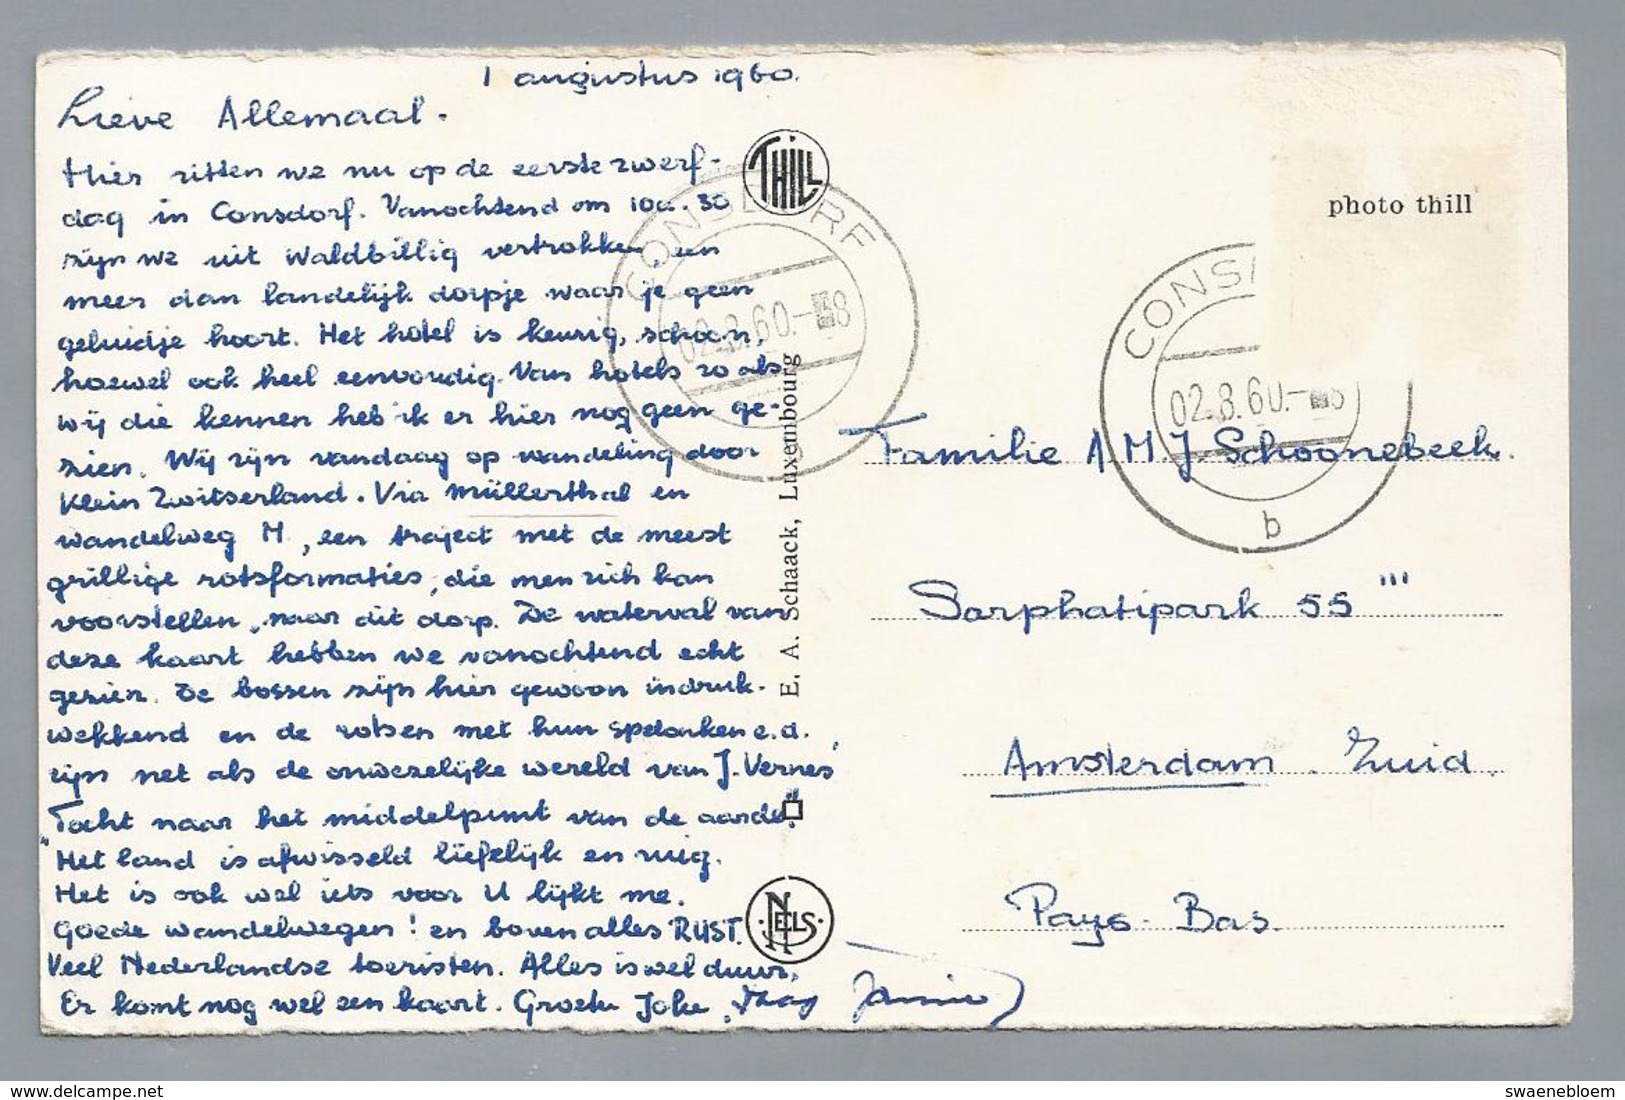 1 augustus 1960.
Lieve Allemaal.
Hier zitten we nu op de eerste zwerf-
dag in Consdorf. Vanochtend om 10u.30
zijn we uit Waldbillig vertrokken, een
meer dan landelijk dorpje waar je geen
geluidje hoort. Het hotel is keurig, schoon,
hoewel ook heel eenvoudig. Van hotels zoals
wij die kennen heb ik er hier nog geen ge-
zien. Wij zijn vandaag op wandeling door
Klein Zwitserland. Via Müllerthal en
wandelweg M, een traject met de meest
grillige rotsformaties, die men zich kan
voorstellen, naar dit dorp. De waterval van
deze kaart hebben we vanochtend echt
gezien. De bossen zijn hier gewoon indruk-
wekkend en de rotsen met hun spelonken e.d.
zijn net als de onwezelijke wereld van J. Vernes'
"Tocht naar het middelpunt van de aarde."
Het land is afwisseld liefelijk en ruig.
Het is ook wel iets voor U lijkt me.
Goede wandelwegen! en boven alles RUST.
Veel Nederlandse toeristen. Alles is wel duur.
Er komt nog wel een kaart. Groeten Joke,
THILL
CONSDORF
02.8.60.-8
E. A. Schaack, Luxembourg
NELS
photo thill
CONS
02.8.60.-8
b
Familie A M J Schoonebeek.
Sarphatipark 55 '''
Amsterdam. Zuid.
Pays-Bas.
www.delcampe.net
swaenebloem